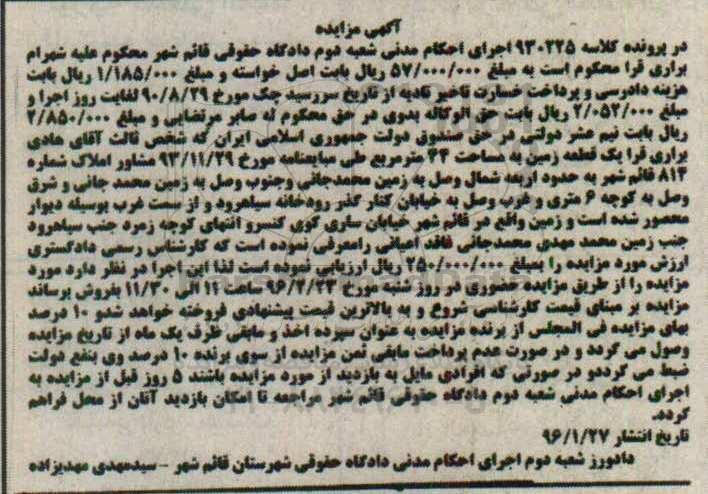 آگهی مزایده
در پرونده کلاسه ۹۳۰۲۲۵ اجرای احکام مدنی شعبه دوم دادگاه حقوقی قائم شهر محکوم علیه شهرام
براری قرا محکوم است به مبلغ ۵۷/۰۰۰/۰۰۰ ریال بابت اصل خواسته و مبلغ ۱/۱۸۵/۰۰۰ ریال بابت
هزینه دادرسی و پرداخت خسارت تاخیر تادیه از تاریخ سررسید چک مورخ ۹۰/۸/۲۹ لغایت روز اجرا و
مبلغ ۲/۰۵۲/۰۰۰ ریال بابت حق الوکاله بدوی در حق محکوم له صابر مرتضایی و مبلغ ۲/۸۵۰/۰۰۰
ریال بابت نیم عشر دولتی در حق صندوق دولت جمهوری اسلامی ایران که شخص ثالث آقای هادی
براری قرا یک قطعه زمین به مساحت ۴۴ مترمربع طی مبایعنامه مورخ ۹۳/۱۱/۲۹ مشاور املاک شماره
۸۱۴ قائم شهر به حدود اربعه شمال وصل به زمین محمدجانی وجنوب وصل به زمین محمد جانی و شرق
وصل به کوچه ۶ متری و غرب وصل به خیابان کنار گذر رودخانه سیاهرود و از سمت غرب بوسیله دیوار
محصور شده است و زمین واقع در قائم شهر خیابان ساری کوی کنسرو انتهای کوچه زمرد جنب سیاهرود
جنب زمین محمد مهدی محمدجانی فاقد اعیانی رامعرفی نموده است که کارشناس رسمی دادگستری
ارزش مورد مزایده را بمبلغ ۲۵۰/۰۰۰/۰۰۰ ریال ارزیابی نموده است لذا این اجرا در نظر دارد مورد
مزایده را از طریق مزایده حضوری در روز شنبه مورخ ۹۶/۲/۲۳ ساعت ۱۱ الی ۱۱/۳۰ بفروش برساند
مزایده بر مبنای قیمت کارشناسی شروع و به بالاترین قیمت پیشنهادی فروخته خواهد شدو ۱۰ درصد
بهای مزایده فی المجلس از برنده مزایده به عنوان سپرده اخذ و مابقی ظرف یک ماه از تاریخ مزایده
وصول می گردد و در صورت عدم پرداخت مابقی ثمن مزایده از سوی برنده ۱۰ درصد وی بنفع دولت
ضبط می گرددو در صورتی که افرادی مایل به بازدید از مورد مزایده باشند ۵ روز قبل از مزایده به
اجرای احکام مدنی شعبه دوم دادگاه حقوقی قائم شهر مراجعه تا امکان بازدید آنان از محل فراهم
گردد.
تاریخ انتشار ۹۶/۱/۲۷
دادورز شعبه دوم اجرای احکام مدنی دادگاه حقوقی شهرستان قائم شهر - سیدمهدی مهدیزاده